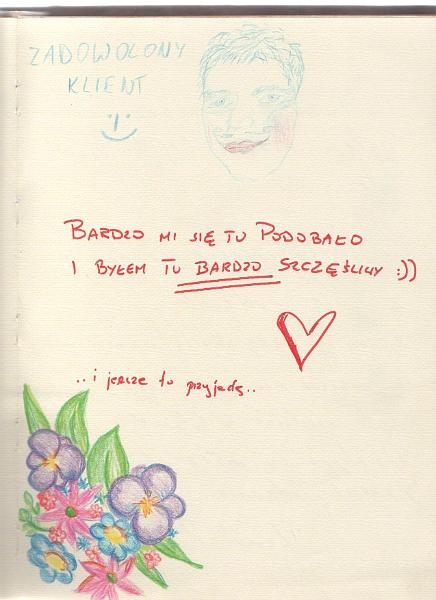 ZADOWOLONY
KLIENT
BARDZO MI SIĘ TU PODOBAŁO
I BYŁEM TU BARDZO SZCZĘŚLIWY :))
..i jeszcze tu przyjadę..